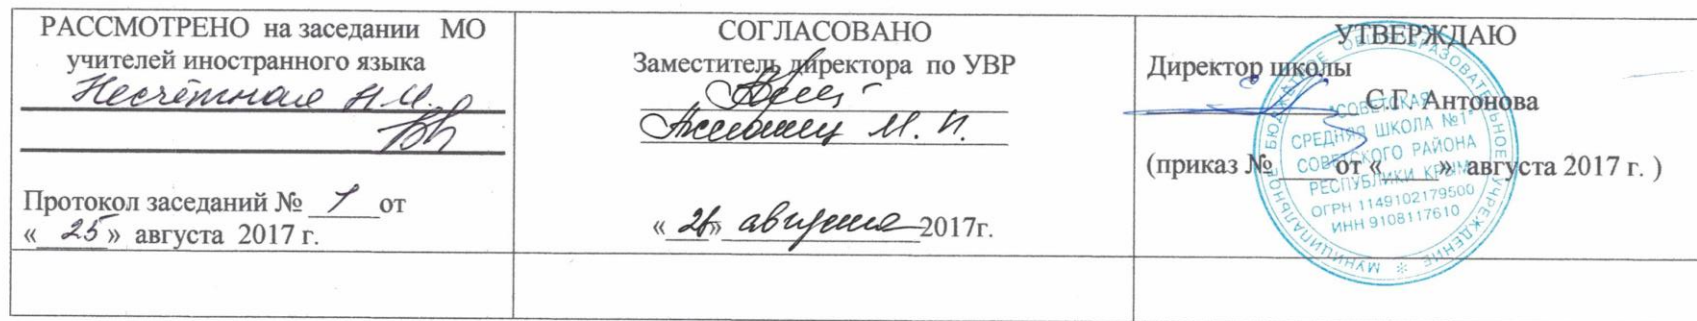 РАССМОТРЕНО на заседании МО
учителей иностранного языка
Несчётная Н.И.
Протокол заседаний № 1 от
« 25 » августа 2017 г.
СОГЛАСОВАНО
Заместитель директора по УВР
М. И.
« 28 » августа 2017г.
УТВЕРЖДАЮ
Директор школы
С.Г. Антонова
(приказ № ____ от « ____ » августа 2017 г. )
МУНИЦИПАЛЬНОЕ БЮДЖЕТНОЕ ОБЩЕОБРАЗОВАТЕЛЬНОЕ УЧРЕЖДЕНИЕ
"СОВЕТСКАЯ
СРЕДНЯЯ ШКОЛА №1"
СОВЕТСКОГО РАЙОНА
РЕСПУБЛИКИ КРЫМ
ОГРН 1149102179500
ИНН 9108117610